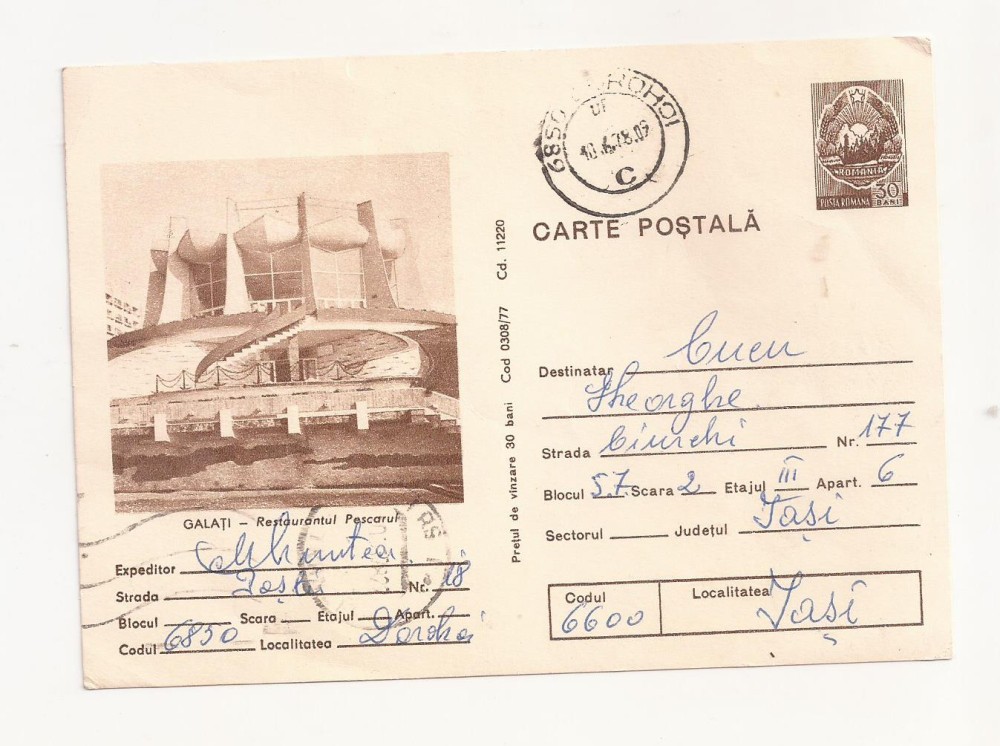 6850 DOROHOI
10.6.78.09
C
ROMANIA
POSTA ROMANA 30 BANI
CARTE POȘTALĂ
GALAȚI – Restaurantul Pescarul
Expeditor
Strada Nr. 18
Blocul Scara Etajul Apart.
Codul 6850 Localitatea Dorohoi
Prețul de vînzare 30 bani Cod 0308/77 Cd. 11220
Destinatar Cucu
Gheorghe
Strada Ciurchi Nr. 177
Blocul 57. Scara 2 Etajul III Apart. 6
Sectorul Județul Iași
Codul 6600 Localitatea Iași